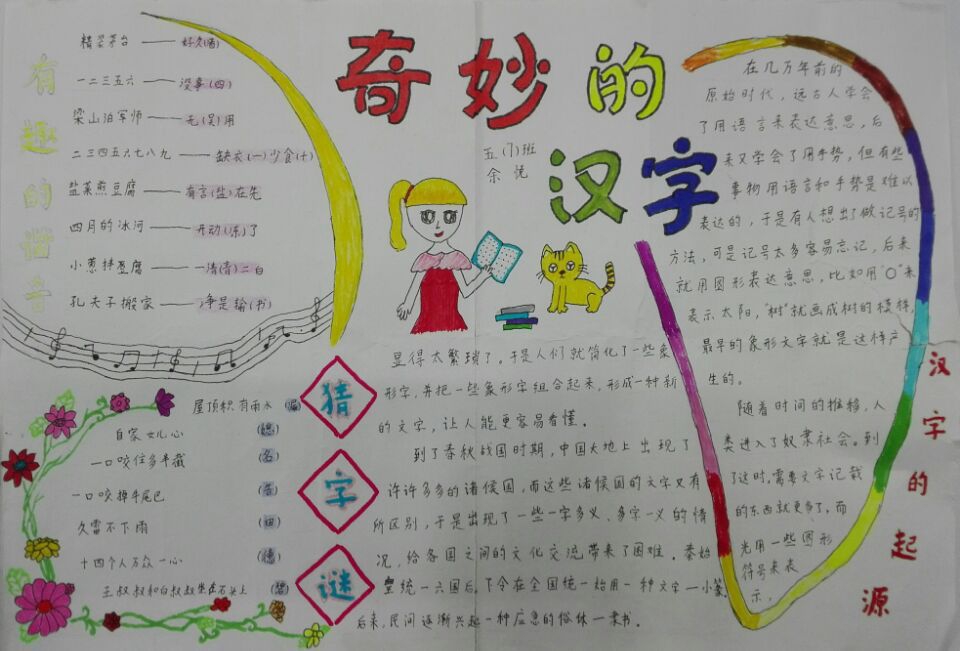 奇妙的
汉字
五(1)班
余悦
有趣的谐音
精装茅台——好久(酒)
一二三五六——没事(四)
梁山泊军师——无(吴)用
二三四五六七八九——缺衣(一)少食(十)
盐菜煎豆腐——有言(盐)在先
四月的冰河——开动(冻)了
小葱拌豆腐——一清(青)二白
孔夫子搬家——净是输(书)
猜字谜
屋顶积有雨水(漏)
自家女儿心
一口咬住多半截(名)
一口咬掉牛尾巴(告)
久雷不下雨(田)
十四个人万众一心(德)
王叔叔和白叔叔坐在石头上(碧)
汉字的起源
在几万年前的
原始时代，远古人学会
了用语言来表达意思，后
来又学会了用手势，但有些
事物用语言和手势是难以
表达的，于是有人想出了做记号的
方法，可是记号太多容易忘记，后来
就用图形表达意思，比如用"〇"来
表示太阳，"树"就画成树的模样，
最早的象形文字就是这样产
生的。
随着时间的推移，人
类进入了奴隶社会。到
了这时，需要文字记载
的东西就更多了，而
光用一些图形
符号来表
示，
显得太繁琐了。于是人们就简化了一些象
形字，并把一些象形字组合起来，形成一种新
的文字，让人能更容易看懂。
到了春秋战国时期，中国大地上出现了
许许多多的诸侯国，而这些诸侯国的文字又有
所区别，于是出现了一些一字多义、多字一义的情
况，给各国之间的文化交流带来了困难。秦始
皇统一六国后，下令在全国统一始用一种文字—小篆，
后来，民间逐渐兴起一种应急的俗体—隶书。